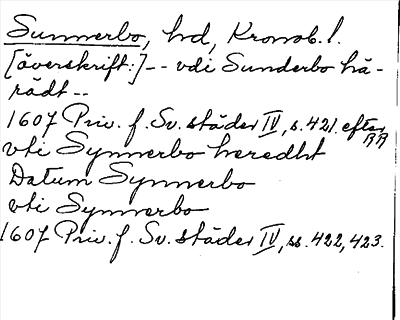 Sunnerbo, hd, Kronob. l.
[överskrift:] -- vdi Sunderbo hä-
rädt --
1607 Priv. f. Sv. städer IV, s. 421. efter RA
vti Synnerbo heredht
Datum Synnerbo
vti Synnerbo
1607 Priv. f. Sv. städer IV, ss. 422, 423.